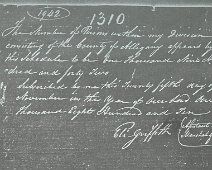 1942
1310
The Number of Persons within my Division
consisting of the County of Allegany appears by
this Schedule to be one Thousand Nine Hun
dred and forty Two
Subscribed by me this Twenty fifth day of
November in the Year of our Lord One
Thousand Eight Hundred and Ten
Griffith
Assistant